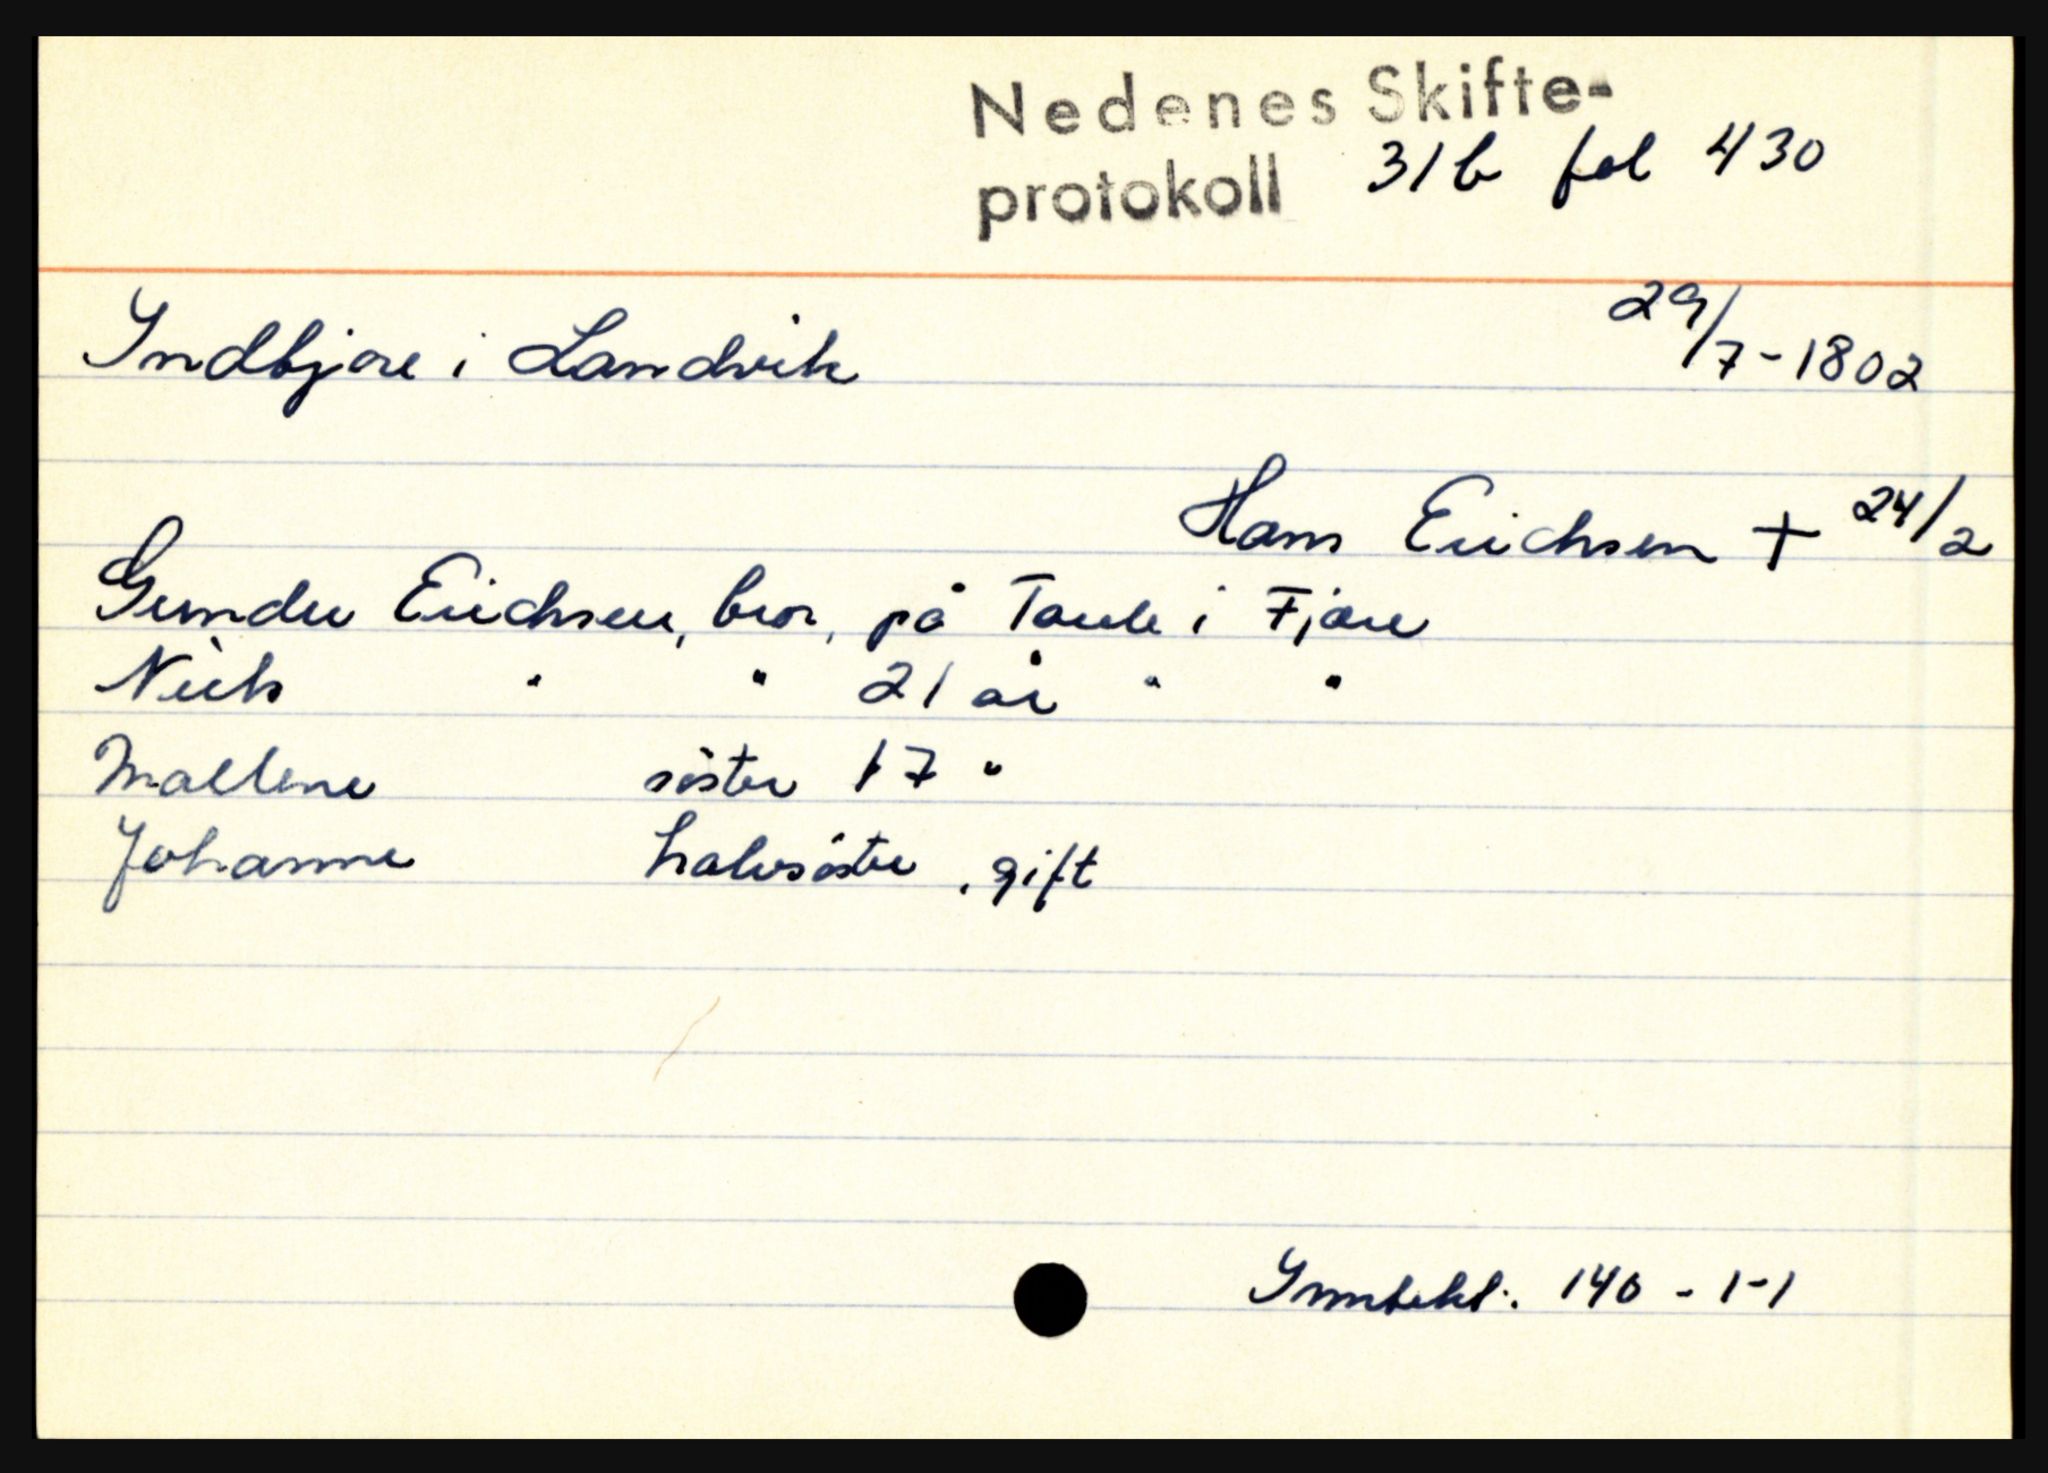 Nedenes Skifte-
protokoll 31b fol 430
Indbjore i Landvik 29/7-1802
Hans Erichsen + 24/2
Gunder Erichsen, bror, på Taule i Fjære
Niels " " 21 år " "
Mallene söster 17 "
Johanne halvsöster, gift
Inntekt. 140 - 1-1